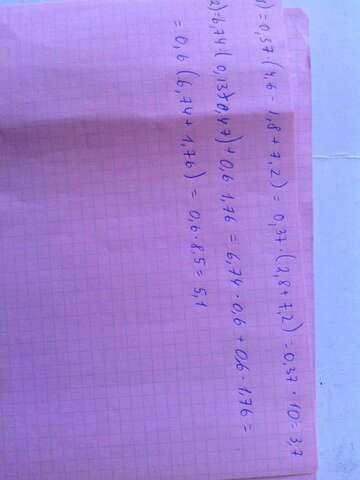 1) = 0,37 · (4,6 - 1,8 + 7,2) = 0,37 · (2,8 + 7,2) = 0,37 · 10 = 3,7
2) = 6,74 · (0,13 + 0,47) + 0,6 · 1,76 = 6,74 · 0,6 + 0,6 · 1,76 =
= 0,6 (6,74 + 1,76) = 0,6 · 8,5 = 5,1